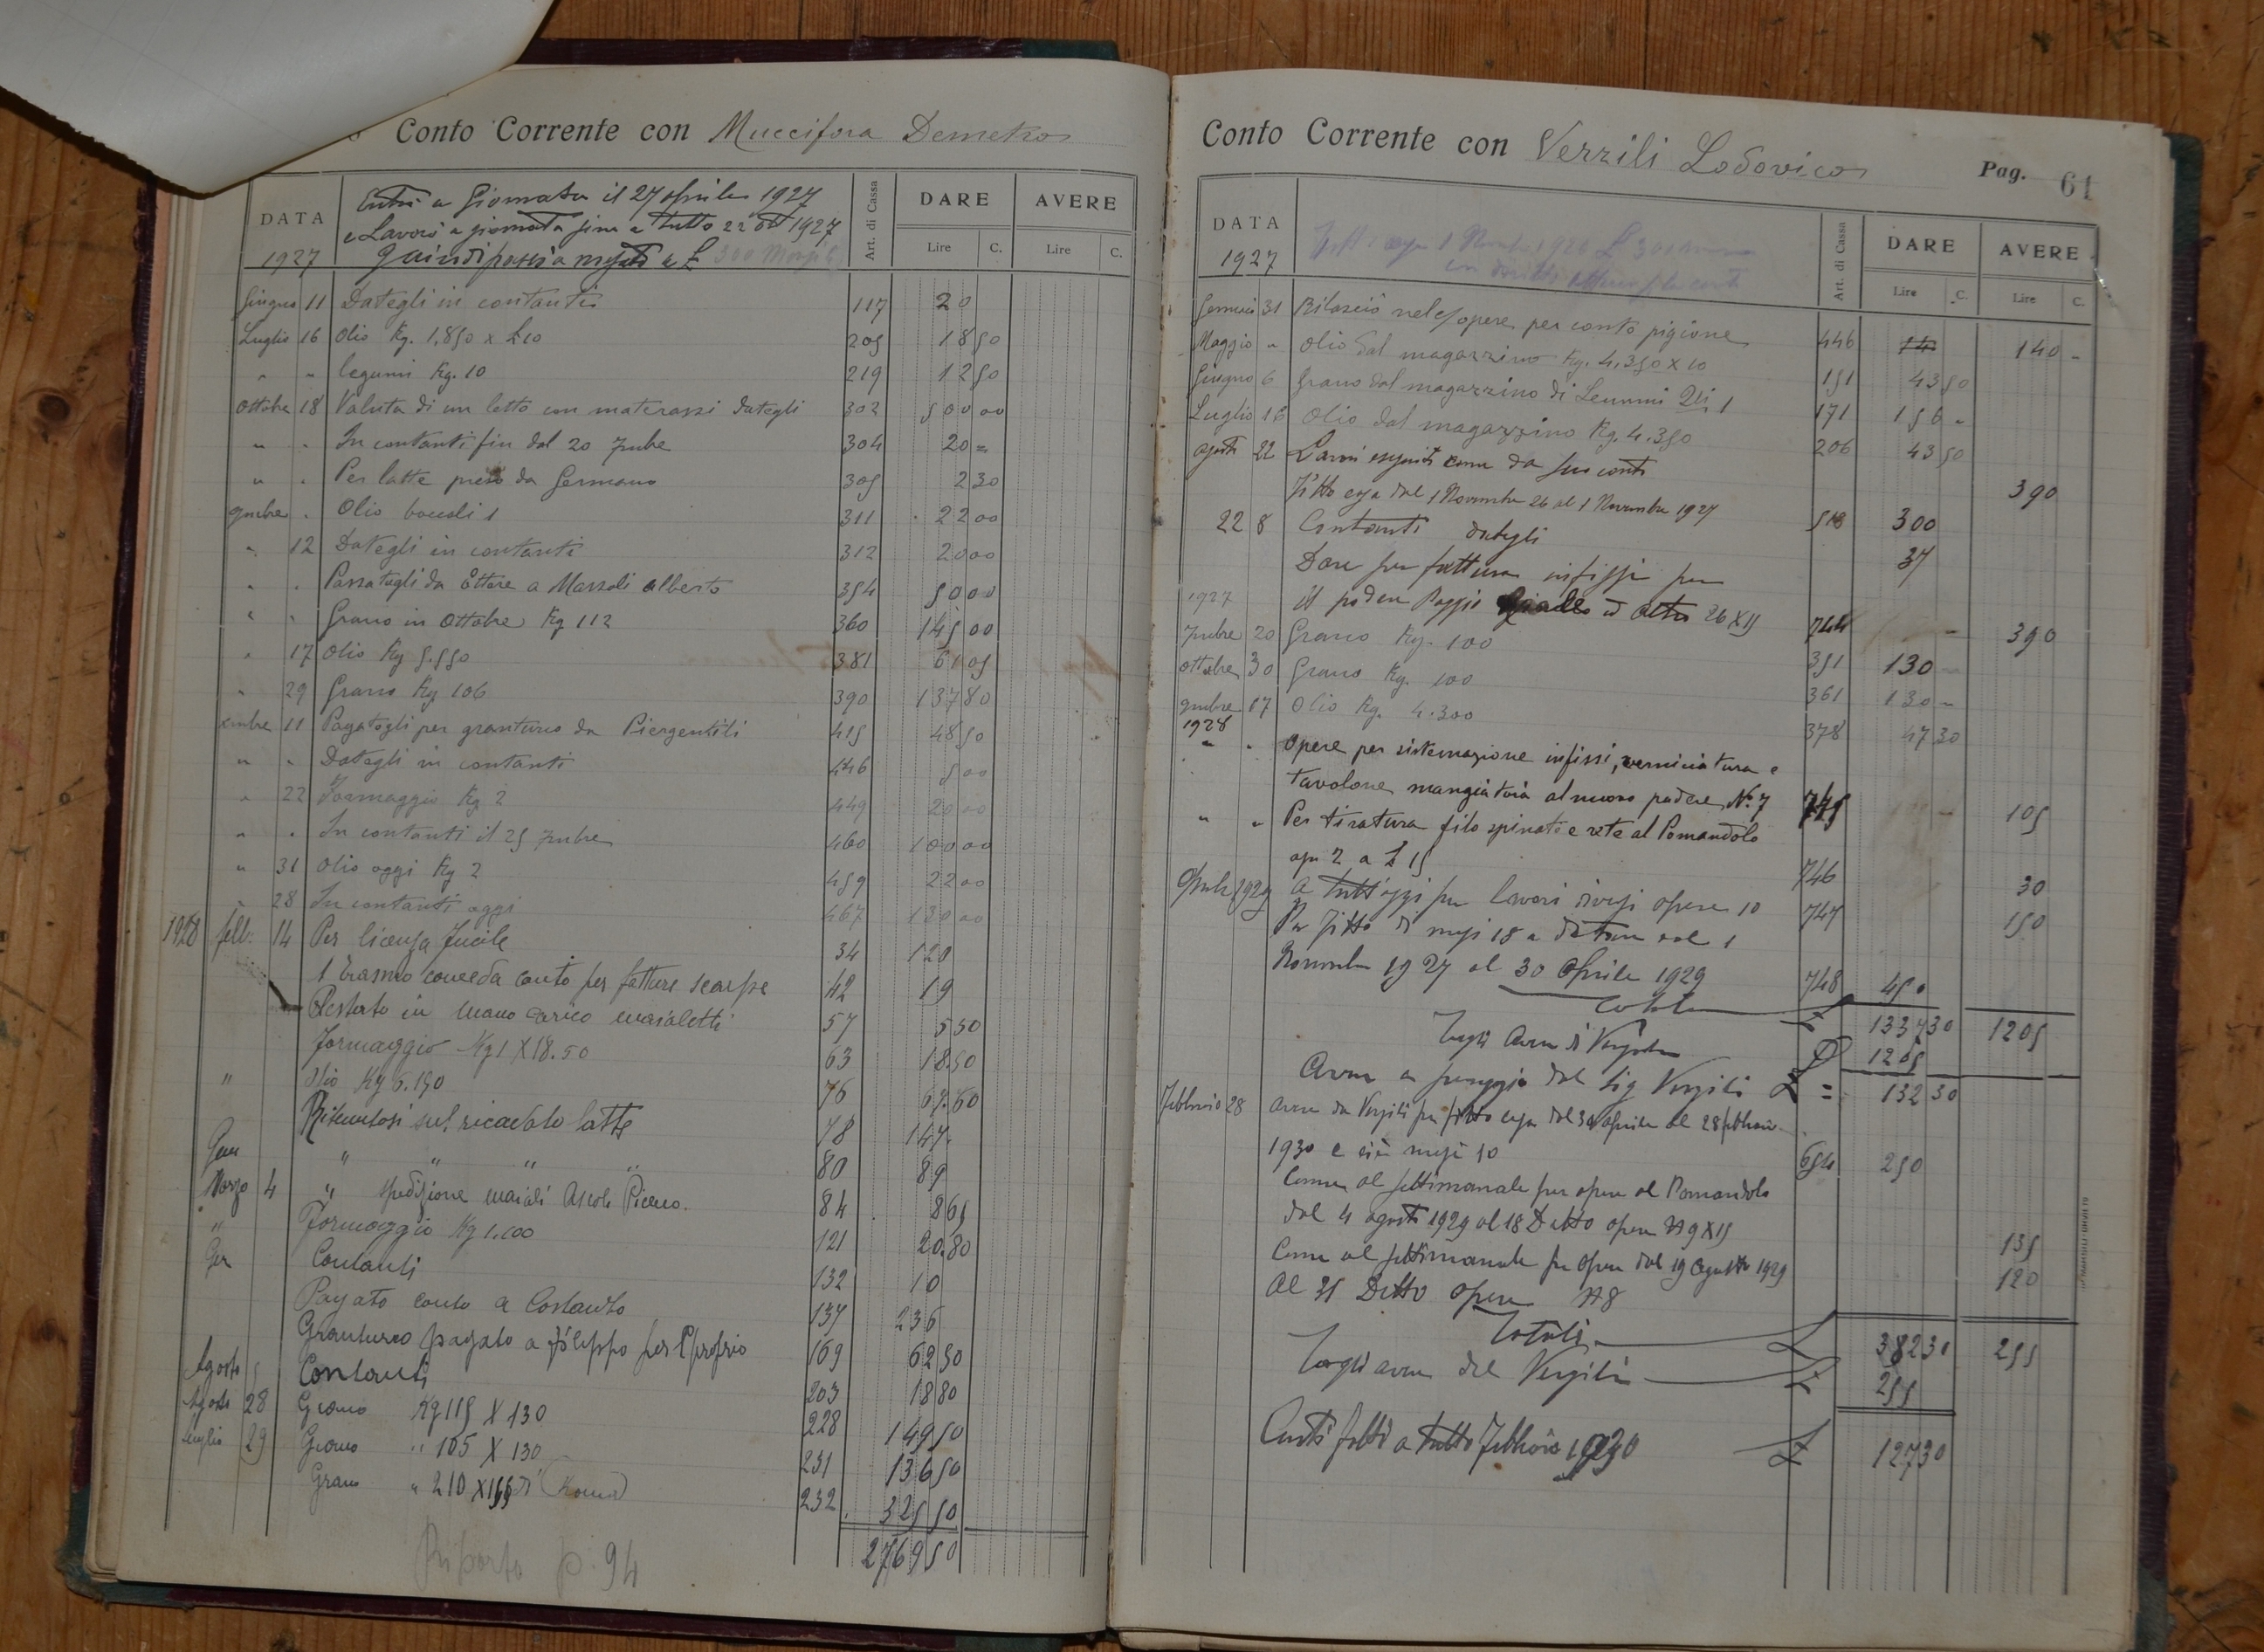 Conto Corrente con Muccifora Demetrio
DATA 1927
Entrò a Giornata il 27 Aprile 1927
e Lavorò a giornata fino a tutto 22 1927
Quindi passò a mesata a £ 300
Art. di Cassa DARE AVERE
Lire C. Lire C.
Giugno 11 Dategli in contanti 117 20
Luglio 16 Olio Kg. 1,850 x £ 10 205 18 50
" " legumi Kg. 10 219 12 50
Ottobre 18 Valuta di un letto con materassi dategli 302 500 00
" " In contanti fin dal 20 7mbre 304 20 =
" " Per latte preso da Germano 305 2 30
9mbre " Olio boccali 1 311 22 00
" 12 Dategli in contanti 312 20 00
" " Passategli da Ettore a Marzoli Alberto 354 50 00
" " Grano in Ottobre Kg 112 360 145 00
" 17 Olio Kg 5.550 381 61 05
" 29 Grano Kg 106 390 137 80
Xmbre 11 Pagatogli per granturco da Piergentili 415 48 50
" " Dategli in contanti 446 5 00
" 22 Formaggio Kg 2 449 20 00
" " In contanti il 25 7mbre 460 100 00
" 31 Olio oggi Kg 2 459 22 00
" 28 In contanti oggi 467 130 00
1928 febb. 14 Per licenza fucile 34 120
1 Erasmo conto per fatture scarpe 42 19
Restato in mano carico maialetti 57 5 50
Formaggio Kg 1 X 18.50 63 18.50
" Olio Kg 6.150 76 67.60
Ritenutosi sul ricavato latte 78 147.
Gen " " " " 80 89
Marzo 4 " spedizione maiali Ascoli Piceno. 84 865
" Formaggio Kg 1.100 121 20.80
Ger Contanti 132 10
Pagato conto a Costanto 137 236
Granturco pagato a Filippo per l'proprio 169 62 50
Agosto Contanti 203 18 80
Agosto 28 Grano Kg 115 X 130 228 149 50
Luglio 29 Grano " 105 X 130 231 136 50
Grano " 210 X 155 di (Roma) 232 325 50
2769 50
Riporto p. 94
Conto Corrente con Verzili Lodovico
Pag. 61
DATA 1927
Art. di Cassa DARE AVERE
Lire C. Lire C.
Gennaio 31 Rilasciò nelle opere per conto pigione 446 140 -
Maggio " Olio dal magazzino Kg. 4.350 x 10 151 43 50
Giugno 6 Grano dal magazzino di Lemmi Qli 1 171 156 "
Luglio 16 Olio dal magazzino Kg. 4.350 206 43 50
Agosto 22 Lavori eseguiti come da suo conto 390
Fitto casa dal 1 Novembre 26 al 1 Novembre 1927 518 300
22 8 Contanti dategli 37
Dare per fattura infissi per
1927 il podere Poggio ed altro 26 X 15 744 390
7mbre 20 Grano Kg. 100 351 130
Ottobre 30 Grano Kg. 100 361 130 -
9mbre 17 Olio Kg. 4.300 378 47 30
1928
" " Opere per sistemazione infissi, verniciatura e
tavolone mangiatoia al nuovo podere N. 7 745 105
" " Per tiratura filo spinato e rete al Pomandolo
op. 2 a £ 15 746 30
1929 A tutt'oggi per lavori diversi opere 10 747 150
Per fitto di mesi 18 a datare dal 1
Novembre 1927 al 30 Aprile 1929 748 450
Totale £ 1337 30 1205
Tolgo avere di Verzili £ 1205
Avere a pareggio dal Sig Verzili £ = 132 30
Febbraio 28 Avere da Verzili per fitto casa dal 30 Aprile al 28 febbraio
1930 e cioè mesi 10 654 250
Come al settimanale per opere al Pomandolo
dal 4 agosto 1929 al 18 Detto opere N 9 X 15 135
Come al settimanale per opere dal 19 Agosto 1929
Al 31 Detto opere N 8 120
Totali £ 382 30 255
Tolgo avere del Verzili £ 255
Conti fatti a tutto Febbraio 1930 £ 127 30